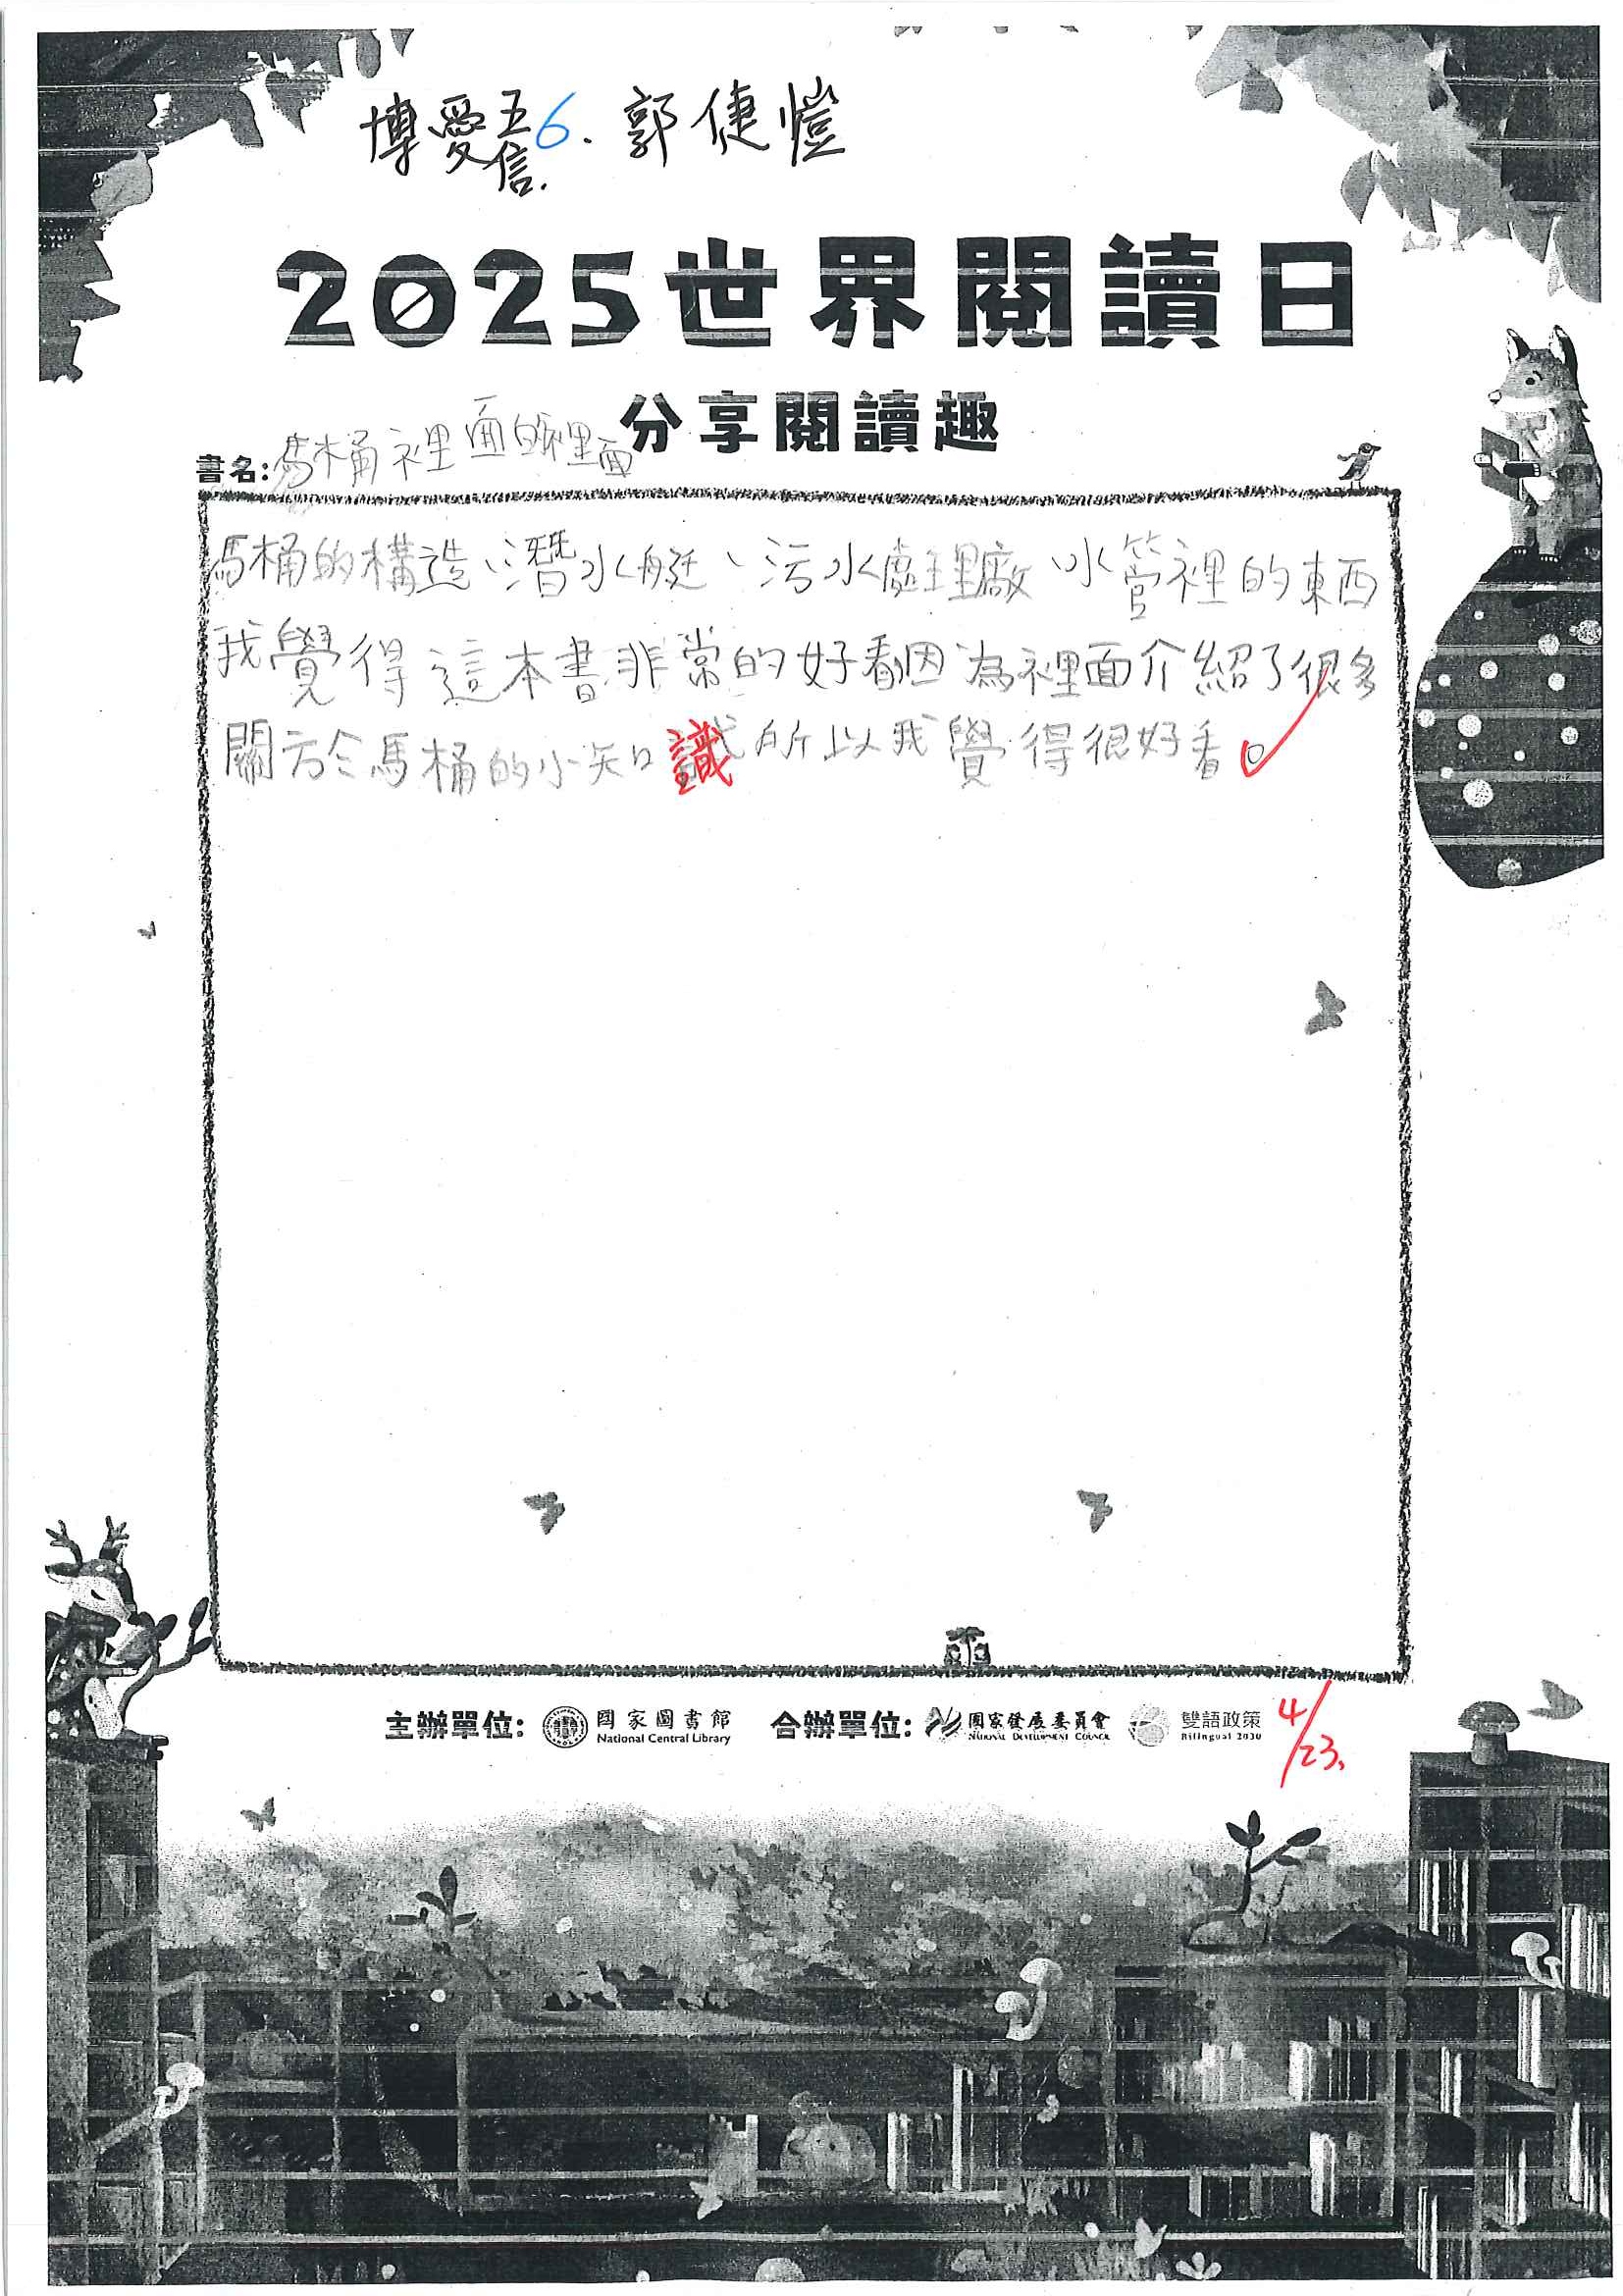 博愛五信 6. 郭倢愷
2025世界閱讀日
分享閱讀趣
書名:馬桶裡面的裡面
馬桶的構造、潛水艇、污水處理廠、水管裡的東西
我覺得這本書非常的好看因為裡面介紹了很多
關於馬桶的小知識所以我覺得很好看。
主辦單位: 國家圖書館 National Central Library 合辦單位: 國家發展委員會 NATIONAL DEVELOPMENT COUNCIL 雙語政策 Bilingual 2030
4/23.